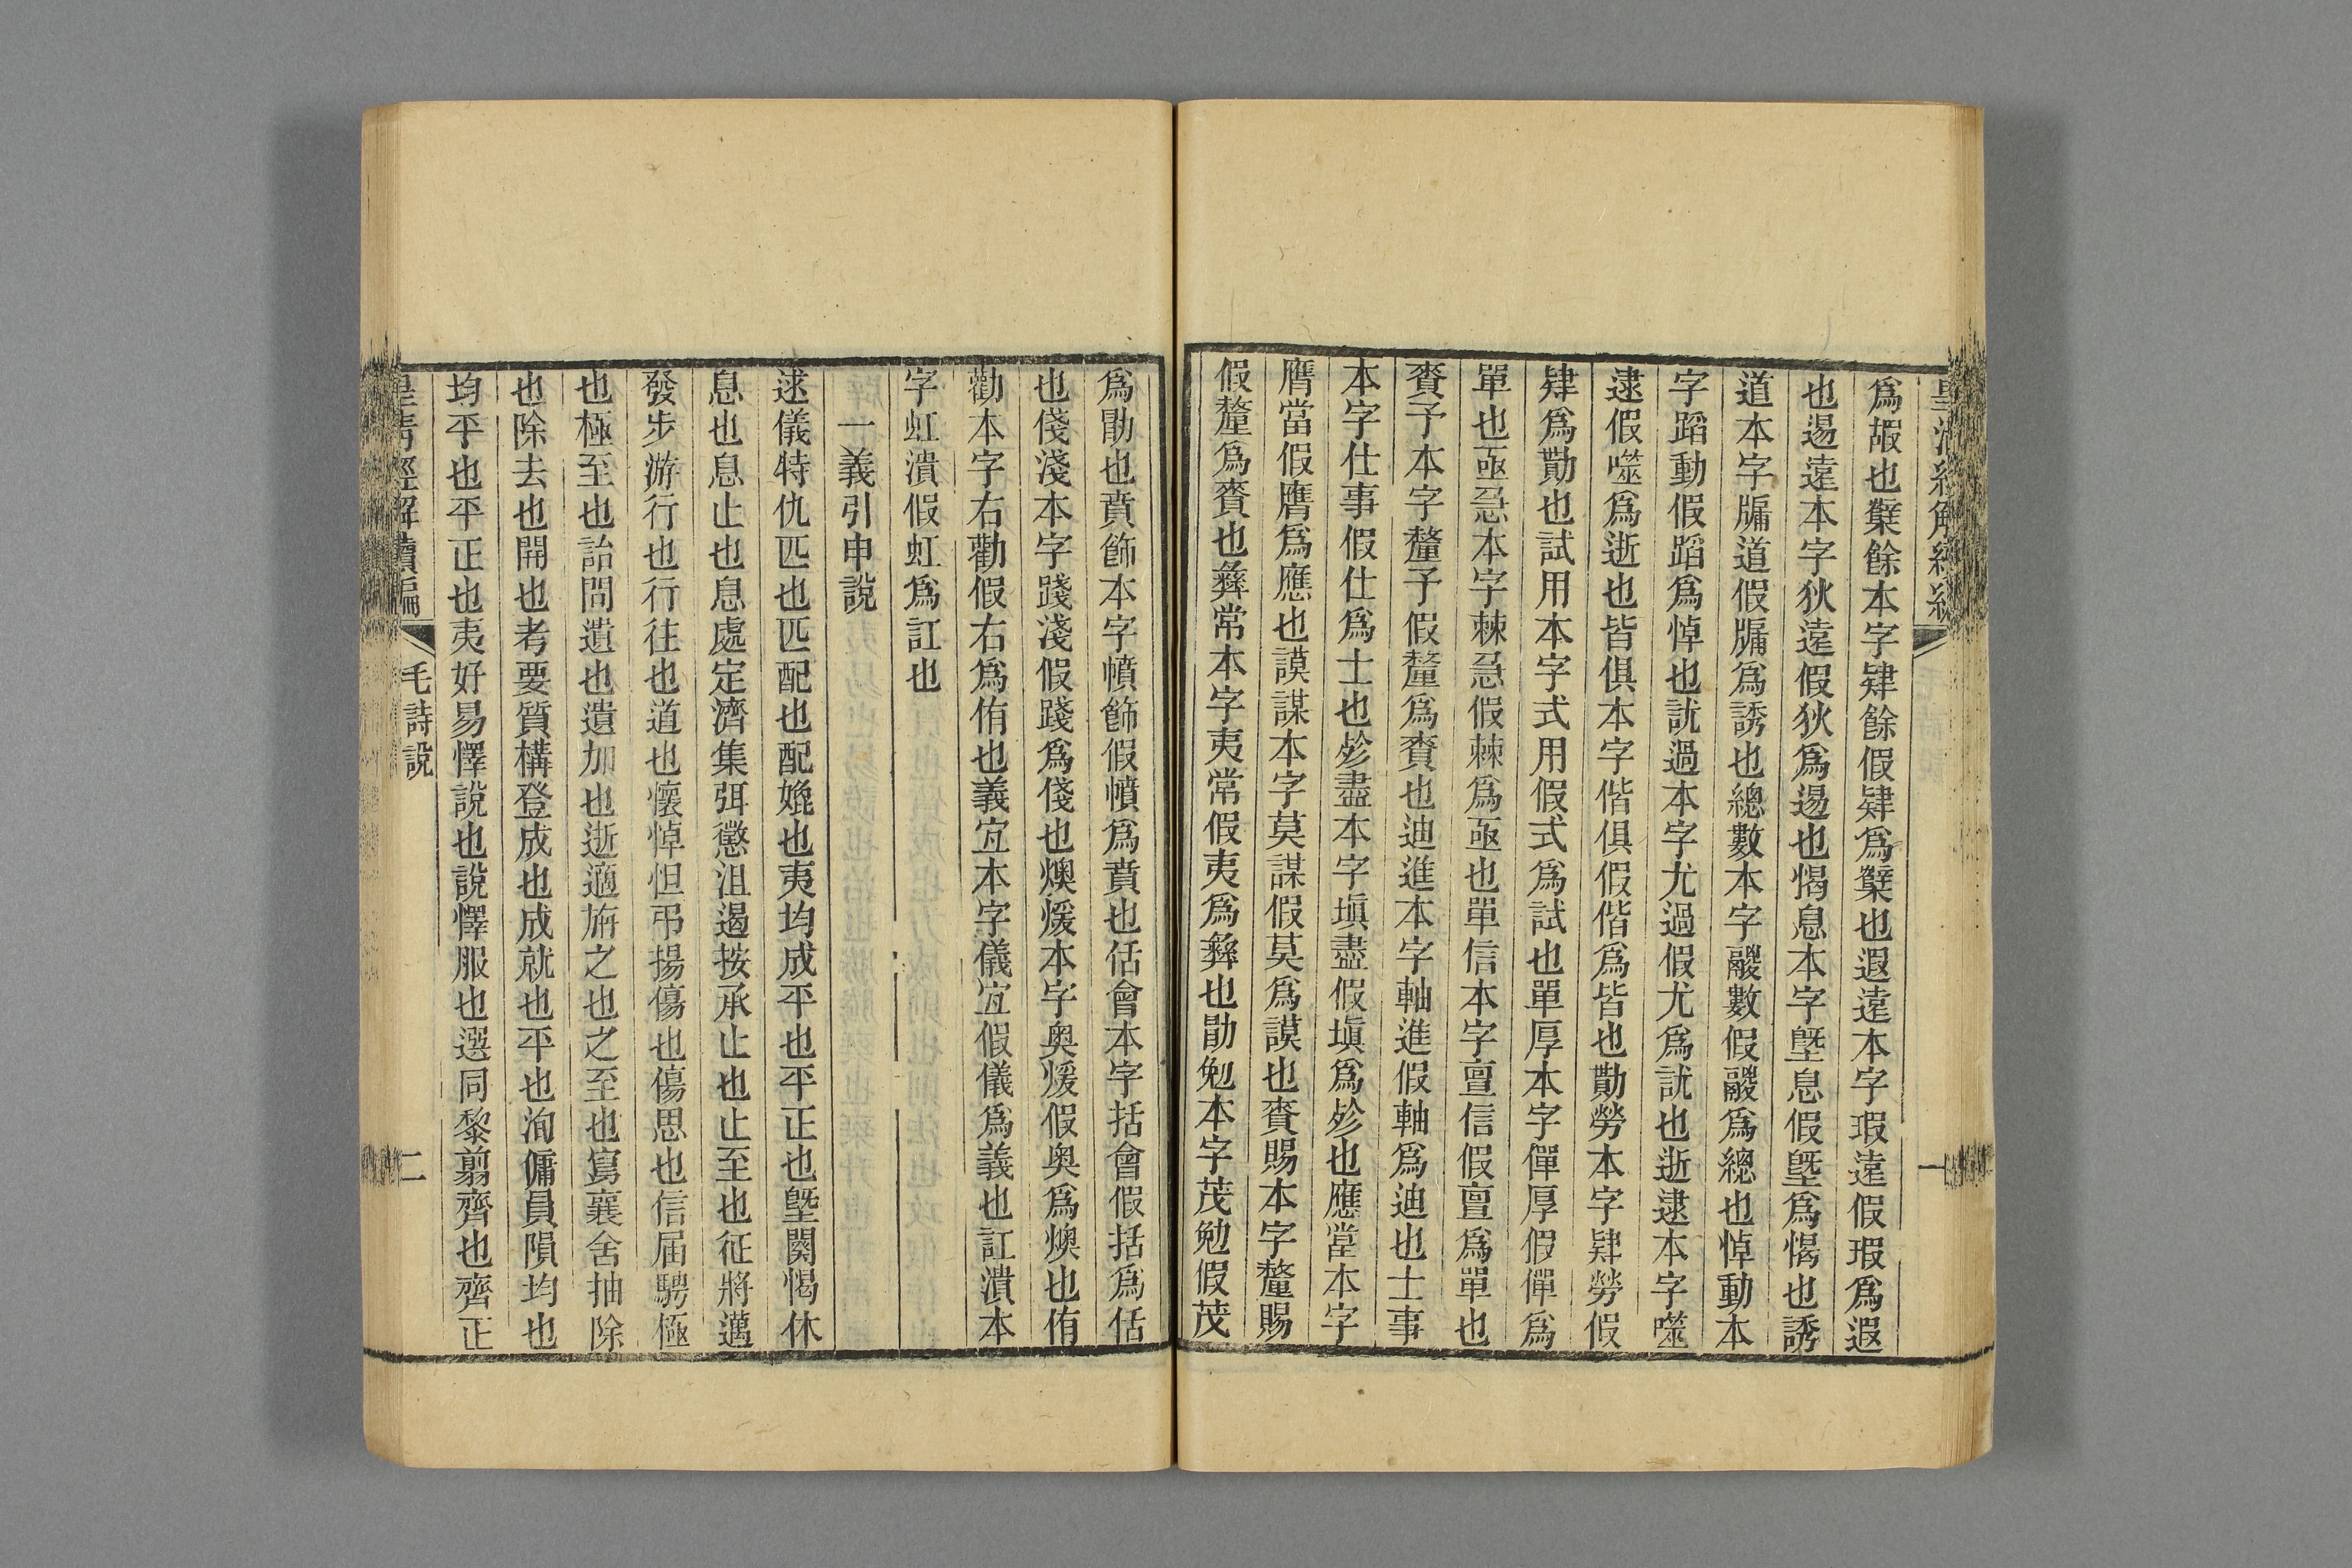 爲嘏也櫱餘本字肄餘假肄爲櫱也遐遠本字瑕遠假瑕爲遐
也逷遠本字狄遠假狄爲逷也愒息本字塈息假塈爲愒也誘
道本字牖道假牖爲誘也總數本字鬷數假鬷爲總也悼動本
字蹈動假蹈爲悼也訧過本字尤過假尤爲訧也逝逮本字噬
逮假噬爲逝也皆俱本字偕俱假偕爲皆也勩勞本字肄勞假
肄爲勩也試用本字式用假式爲試也單厚本字僤厚假僤爲
單也亟急本字棘急假棘爲亟也單信本字亶信假亶爲單也
賚予本字釐予假釐爲賚也迪進本字軸進假軸爲迪也士事
本字仕事假仕爲士也殄盡本字塡盡假塡爲殄也應當本字
膺當假膺爲應也謨謀本字莫謀假莫爲謨也賚賜本字釐賜
假釐爲賚也彝常本字夷常假夷爲彝也勖勉本字茂勉假茂
爲勖也賁飾本字幩飾假幩爲賁也佸會本字括會假括爲佸
也俴淺本字踐淺假踐爲俴也燠煖本字奥煖假奥爲燠也侑
勸本字右勸假右爲侑也義宜本字儀宜假儀爲義也訌潰本
字虹潰假虹爲訌也
一義引申說
逑儀特仇匹也匹配也配媲也夷均成平也平正也塈闋愒休
息也息止也息處定濟集弭懲沮遏按承止也止至也征將邁
發步游行也行往也道也懷悼怛弔揚傷也傷思也信届騁極
也極至也詒問遺也遺加也逝適旃之也之至也寫襄舍抽除
也除去也開也考要質構登成也成就也平也洵傭員隕均也
均平也平正也夷好易懌說也說懌服也選同黎翦齊也齊正
皇清經解續編
毛詩說
二